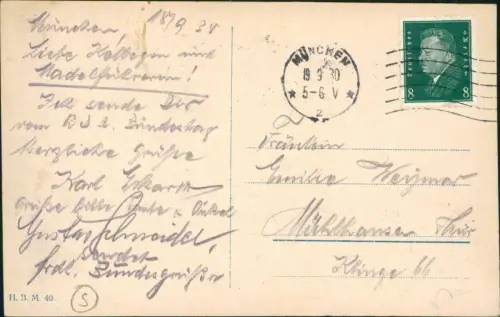 München, 18/9. 30
Liebe Kollegen und
Madelführerin!
Ich sende Dir
vom Bundestag
herzliche Grüße
Karl Eckardt
Grüße
Gustav Schneider,
sendet
frdl. Bundesgrüße
H. B. M. 40
S
MÜNCHEN
19.9.30
5-6 V
2
Deutsches Reich
8 8
Fräulein
Emilie Weymar
Mühlhausen Thür
Klinge 66